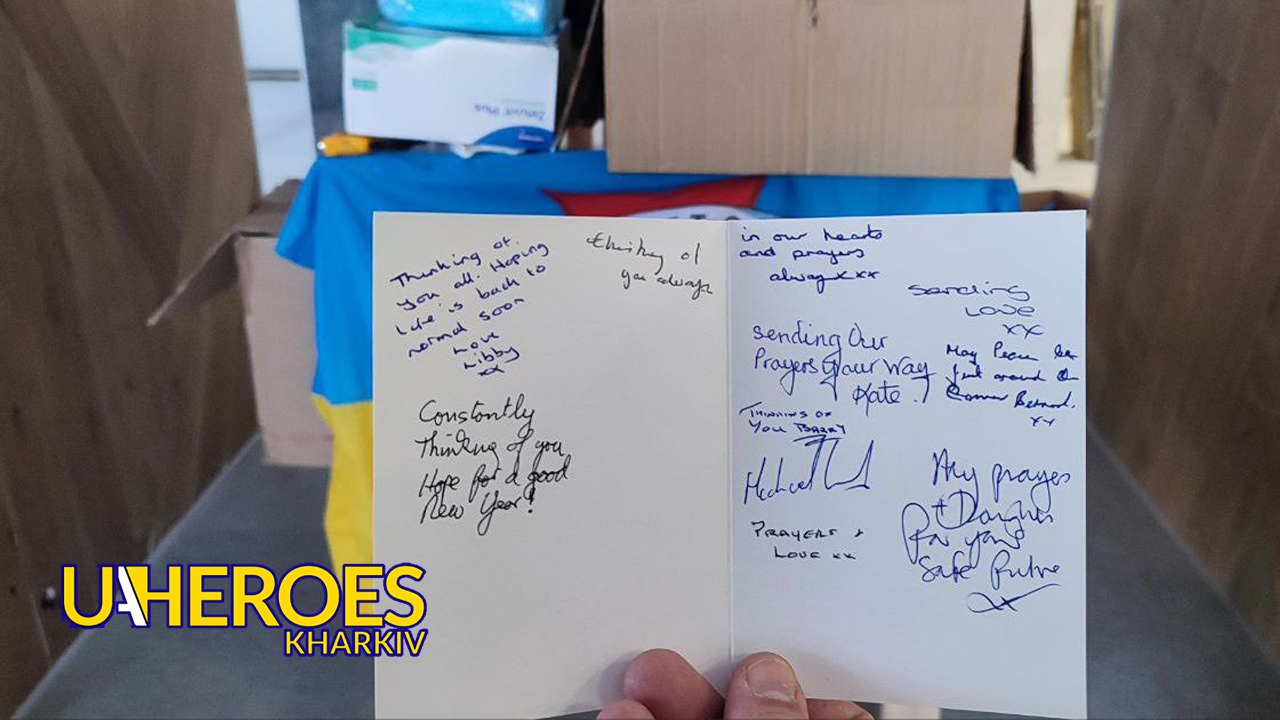 Thinking of
you all. Hoping
life is back to
normal soon
Love
Libby
xx
thinking of
you always
Constantly
Thinking of you
Hope for a good
New Year!
in our hearts
and prayers
always xxx
Sending
LOVE
xx
Sending Our
Prayers your Way
Kate.
May Peace be
just around the
Corner Bernard.
xx
THINKING OF
YOU BARRY
Michael
PRAYERS +
LOVE xx
My prayers
+
for your
Safe future
xx
Plus
UAHEROES
KHARKIV